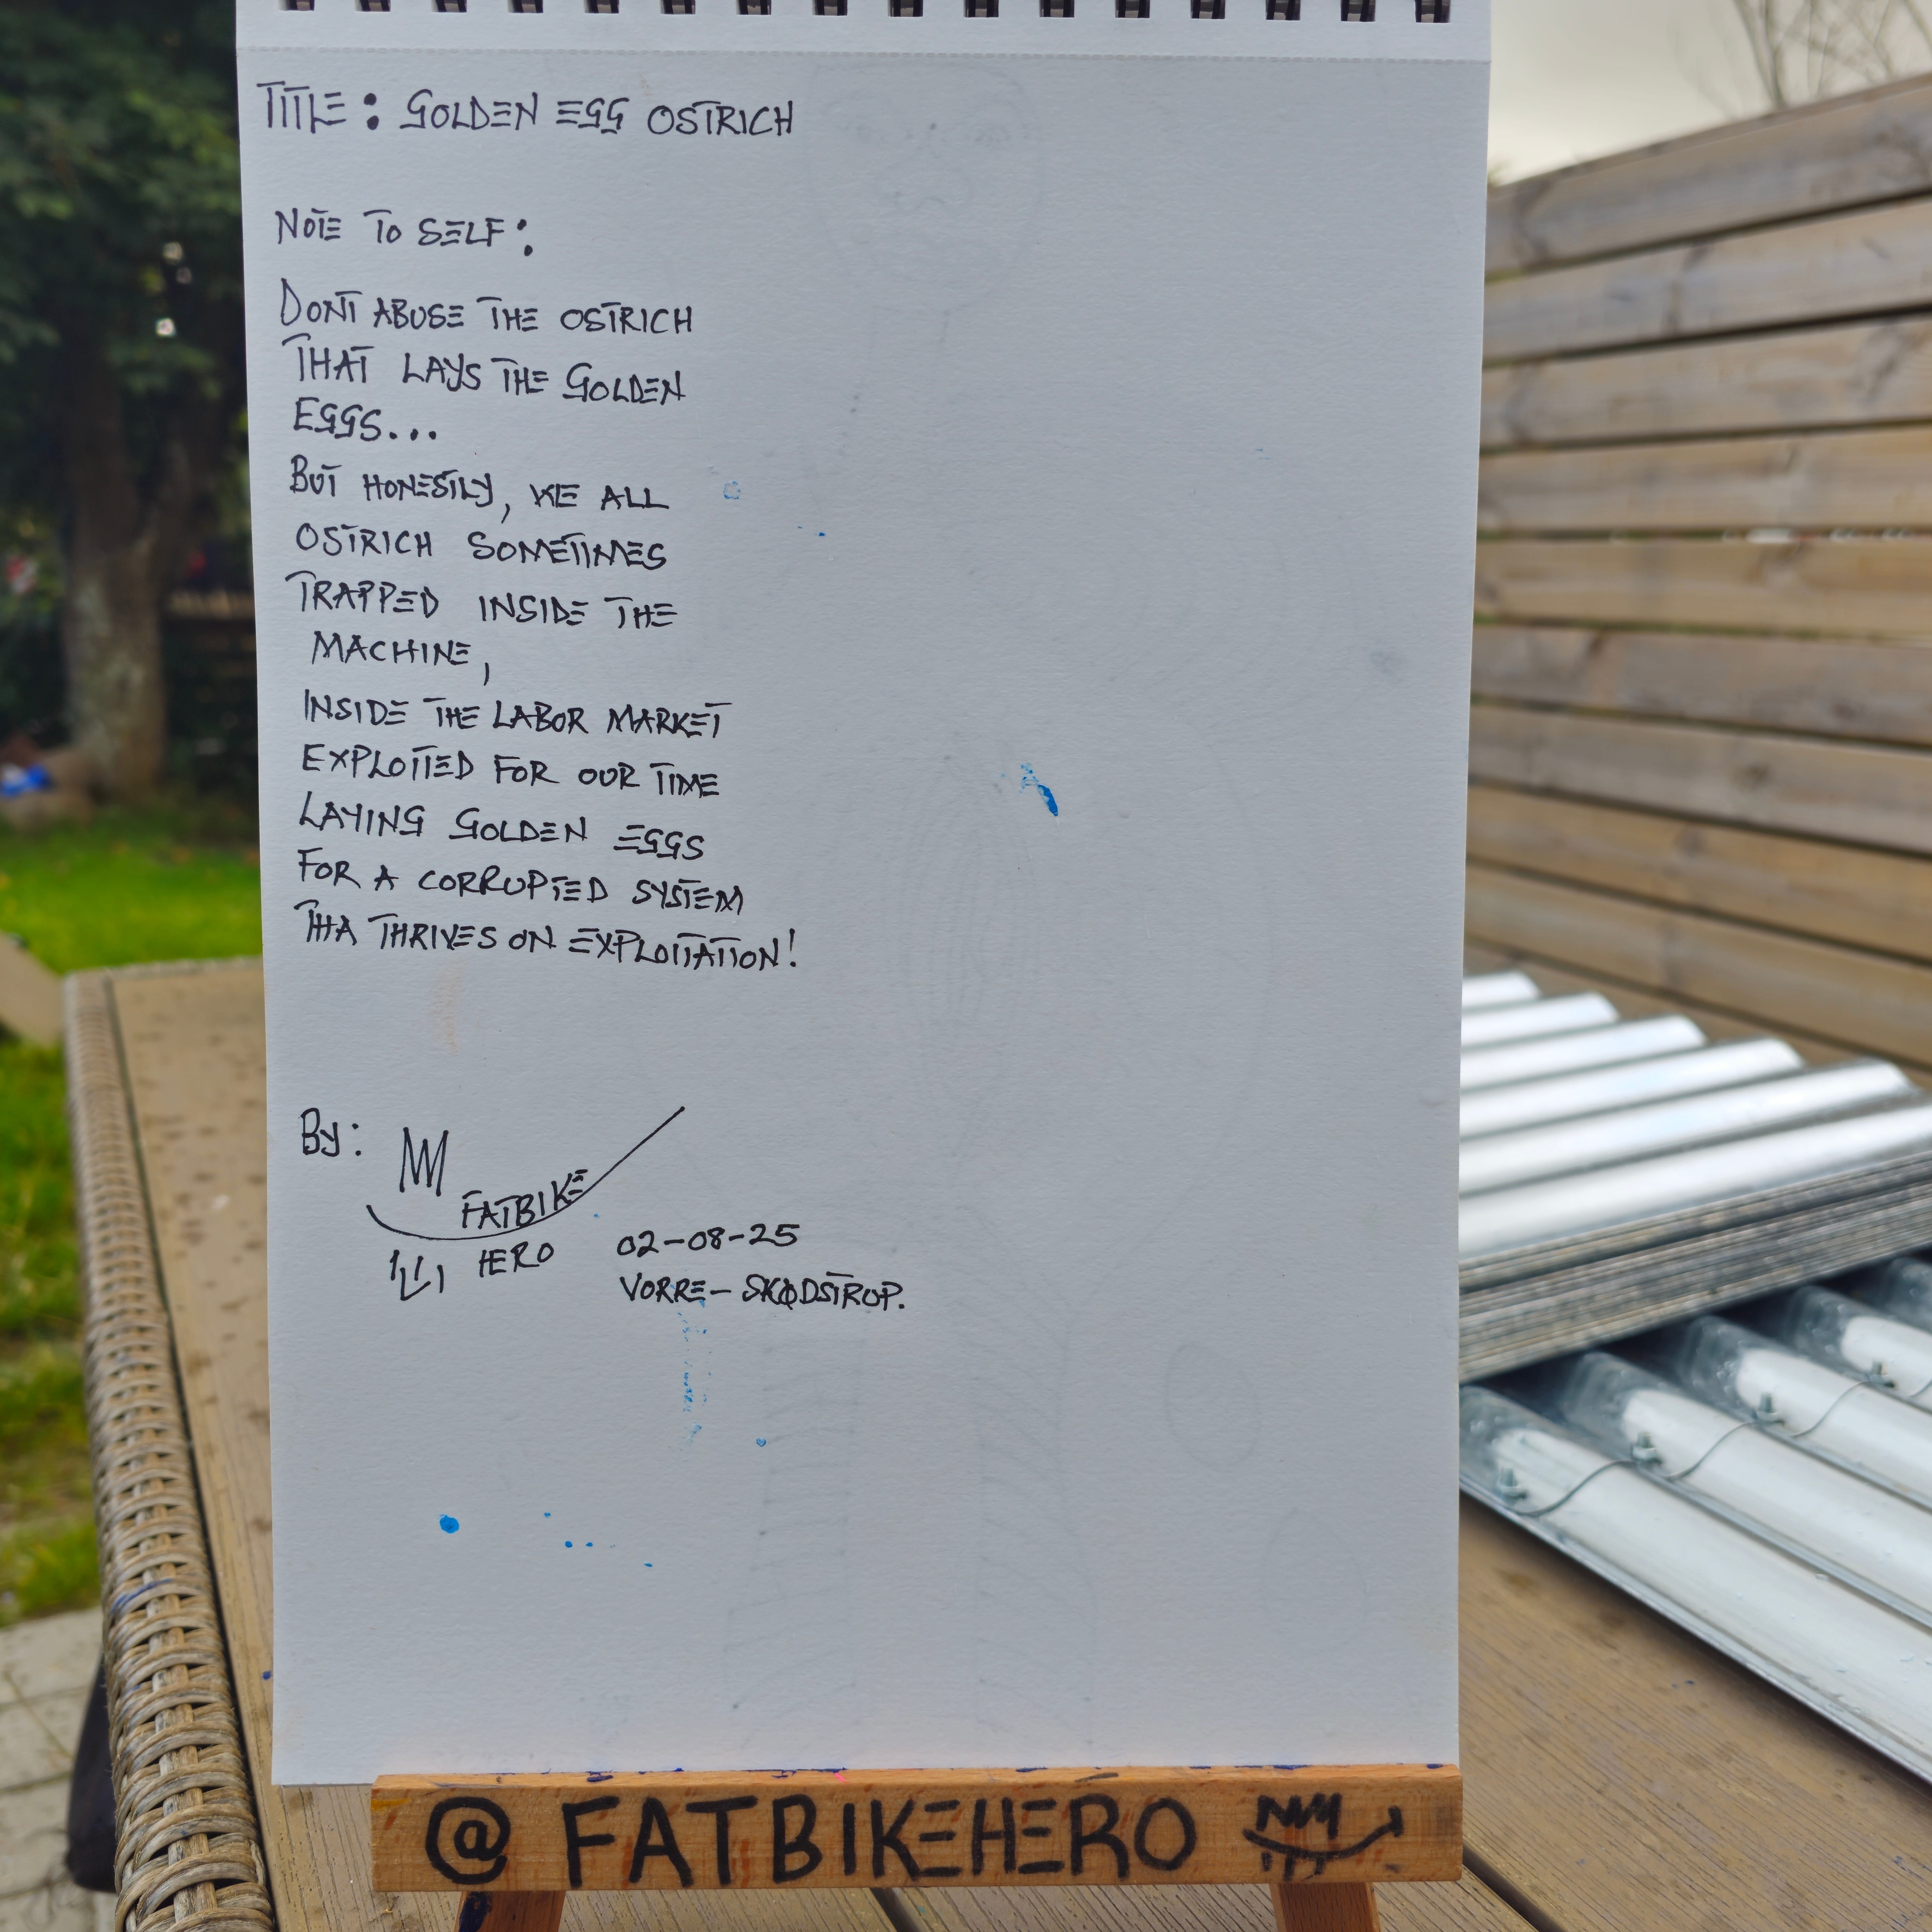 TITLE: GOLDEN EGG OSTRICH
NOTE TO SELF:
DONT ABUSE THE OSTRICH
THAT LAYS THE GOLDEN
EGGS...
BUT HONESTLY, WE ALL
OSTRICH SOMETIMES
TRAPPED INSIDE THE
MACHINE,
INSIDE THE LABOR MARKET
EXPLOITED FOR OUR TIME
LAYING GOLDEN EGGS
FOR A CORRUPTED SYSTEM
THA THRIVES ON EXPLOITATION!
By:
FATBIKE
HERO
02-08-25
VORRE- SKØDSTRUP.
@FATBIKEHERO